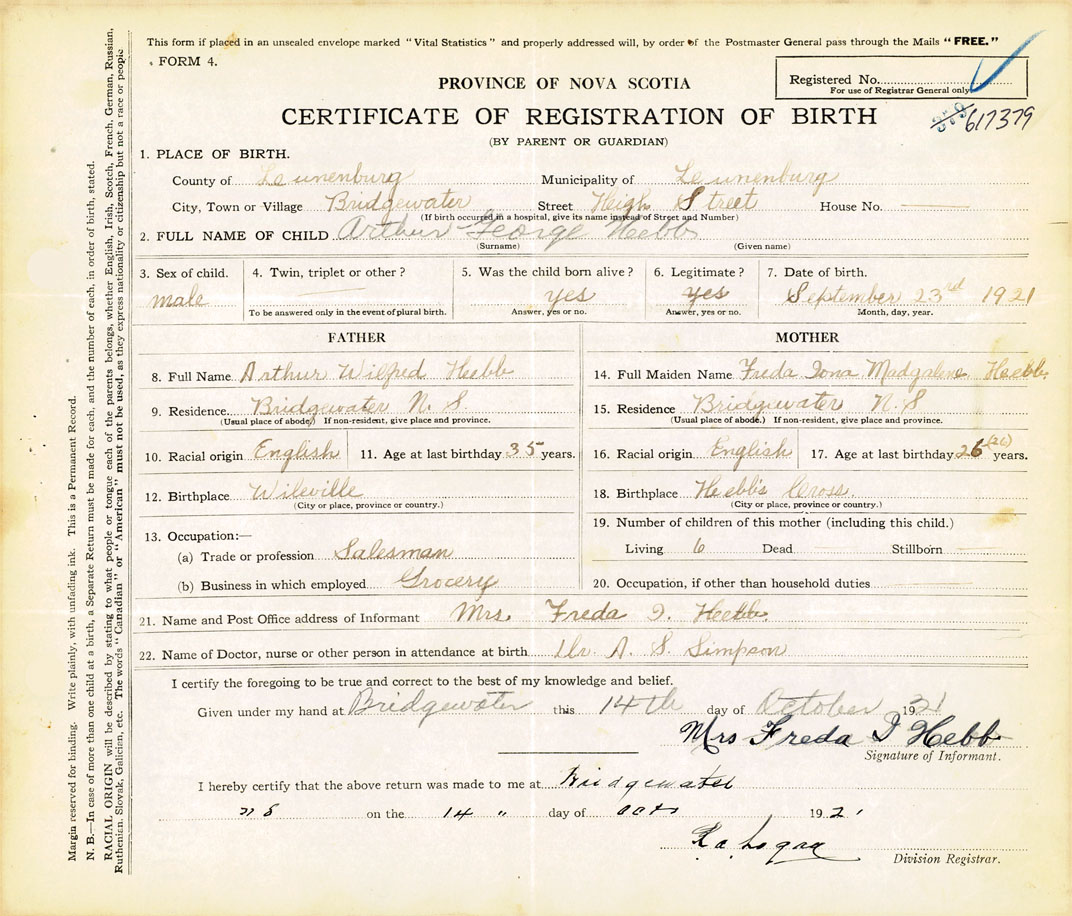 This form if placed in an unsealed envelope marked "Vital Statistics" and properly addressed will, by order of the Postmaster General pass through the Mails "FREE."
FORM 4.
Registered No.
For use of Registrar General only
PROVINCE OF NOVA SCOTIA
CERTIFICATE OF REGISTRATION OF BIRTH
379 617379
(BY PARENT OR GUARDIAN)
1. PLACE OF BIRTH.
County of Leunenburg Municipality of Leunenburg
City, Town or Village Bridgewater Street Heigh Street House No. ——
(If birth occurred in a hospital, give its name instead of Street and Number)
2. FULL NAME OF CHILD Arthur George Hebb
(Surname) (Given name)
3. Sex of child. 4. Twin, triplet or other? 5. Was the child born alive? 6. Legitimate? 7. Date of birth.
male —— yes yes September 23rd 1921
To be answered only in the event of plural birth. Answer, yes or no. Answer, yes or no. Month, day, year.
FATHER MOTHER
8. Full Name Arthur Wilfred Hebb 14. Full Maiden Name Freda Iona Madgalene Hebb.
9. Residence Bridgewater N. S. 15. Residence Bridgewater N. S
(Usual place of abode.) If non-resident, give place and province. (Usual place of abode.) If non-resident, give place and province.
10. Racial origin English 11. Age at last birthday 35 years. 16. Racial origin English 17. Age at last birthday 26 (26) years.
12. Birthplace Wileville 18. Birthplace Hebb's Cross.
(City or place, province or country.) (City or place, province or country.)
13. Occupation:— 19. Number of children of this mother (including this child.)
(a) Trade or profession Salesman Living 6 Dead Stillborn ——
(b) Business in which employed Grocery 20. Occupation, if other than household duties ——
21. Name and Post Office address of Informant Mrs. Freda I. Hebb.
22. Name of Doctor, nurse or other person in attendance at birth Dr. A. S. Simpson
I certify the foregoing to be true and correct to the best of my knowledge and belief.
Given under my hand at Bridgewater this 14th day of October 1921
Mrs Freda I Hebb
Signature of Informant.
I hereby certify that the above return was made to me at Bridgewater
n s on the 14 " day of Oct 1921
Division Registrar.
Margin reserved for binding. Write plainly, with unfading ink. This is a Permanent Record.
N. B.—In case of more than one child at a birth, a Separate Return must be made for each, and the number of each, in order of birth, stated.
RACIAL ORIGIN will be described by stating to what people or tongue each of the parents belongs, whether English, Irish, Scotch, French, German, Russian,
Ruthenian, Slovak, Galician, etc. The words "Canadian" or "American" must not be used, as they express nationality or citizenship but not a race or people